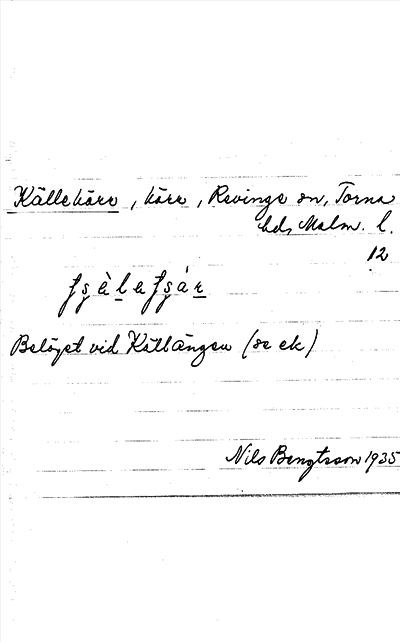 Källekärr, kärr, Revinge sn, Torna
hd, Malm. l.
12
Beläget vid Källängen (se ek)
Nils Bengtsson 1935